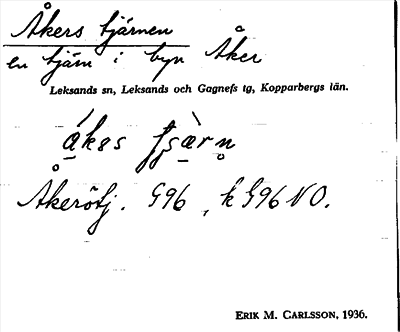 Åkers tjärnen
en tjärn i byn Åker
Leksands sn, Leksands och Gagnefs tg, Kopparbergs län.
Åkerötj. G96, k G96 NO.
ERIK M. CARLSSON, 1936.